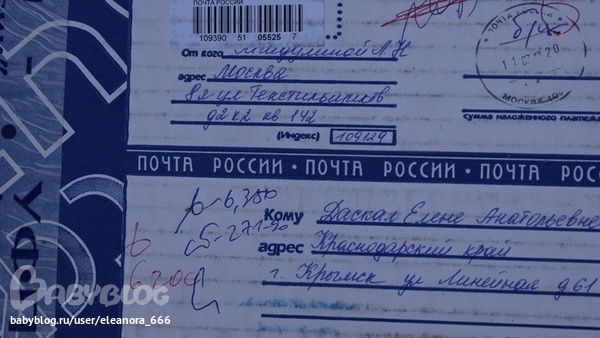 ПОЧТА РОССИИ
109390 51 05525 7
От кого Мицулиной А.Н
адрес Москва
8я ул Текстильщиков
д2 к2 кв 142
(Индекс) 109129
ПОЧТА
11 07 20
МОСКВА 109
сумма наложенного платежа
ПОЧТА РОССИИ • ПОЧТА РОССИИ • ПОЧТА РОССИИ
р-6,380
Кому Даскал Елене Анатольевне
адрес Краснодарский край
г. Крымск ул Линейная д 61
BABYBLOG
babyblog.ru/user/eleanora_666